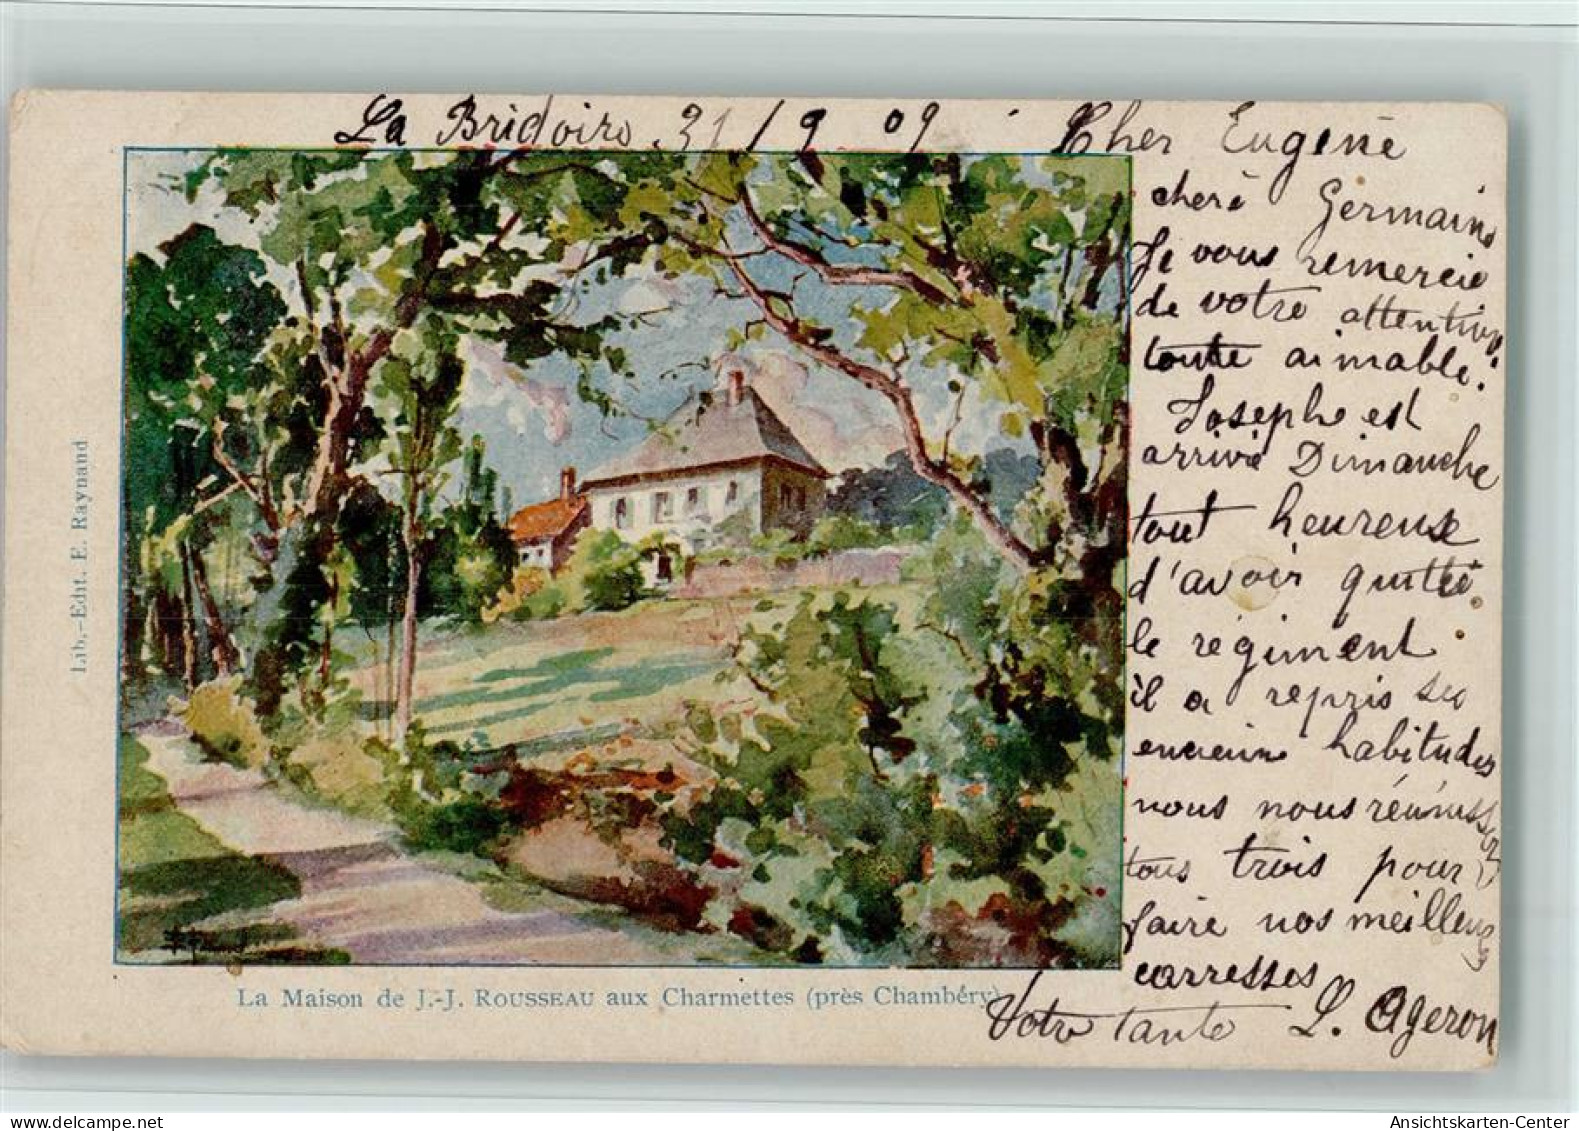 La Bridoire 31/9 09
Cher Eugène
cherè Germaine
Je vous remercie
de votre attention
toute aimable.
Joseph est
arrivé Dimanche
tout heureux
d'avoir quitté
le régiment
il a repris ses
habitudes
nous nous réunissons
tous trois pour
faire nos meilleures
carresses
Votre tante L. Ageron
Lib.-Edit. E. Raynaud
La Maison de J.-J. ROUSSEAU aux Charmettes (près Chambéry)
Ansichtskarten-Center